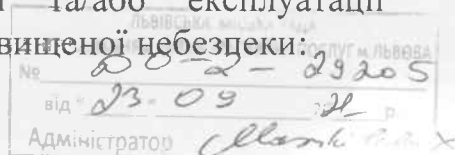 та/або експлуатації
вищеної небезпеки:
ЛЬВІВСЬКА МІСЬКА РАДА
ПОСЛУГ м. ЛЬВОВА
№ 00-2-29205
від 23.09 21 р.
Адміністратор